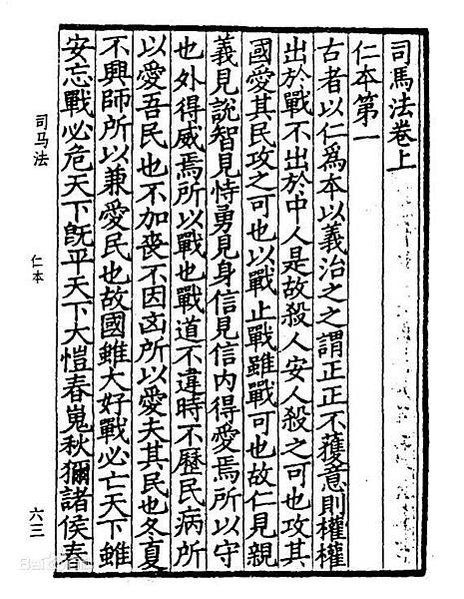 司馬法卷上
仁本第一
古者以仁爲本以義治之之謂正正不獲意則權權
出於戰不出於中人是故殺人安人殺之可也攻其
國愛其民攻之可也以戰止戰雖戰可也故仁見親
義見說智見恃勇見身信見信內得愛焉所以守
也外得威焉所以戰也戰道不違時不歷民病所
以愛吾民也不加喪不因凶所以愛夫其民也冬夏
不興師所以兼愛民也故國雖大好戰必亡天下雖
安忘戰必危天下旣平天下大愷春嵬秋獼諸侯春
司马法
仁本
六三